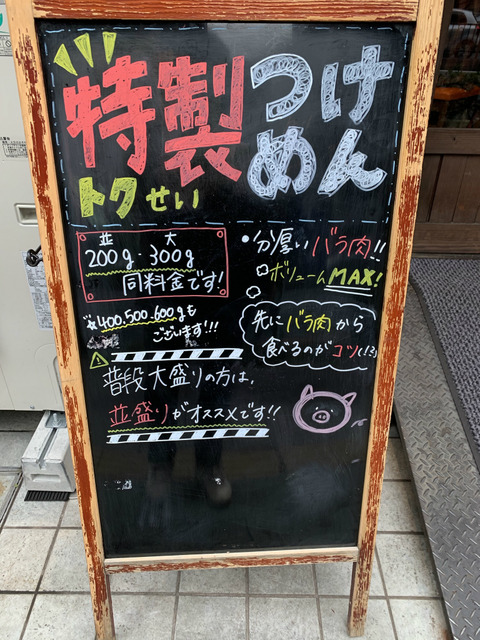 特製つけめん
トクせい
並 大
200g・300g
同料金です!
☆400.500.600gも
ございます!!!
普段大盛りの方は、
並盛りがオススメです!!
・分厚いバラ肉!!
ボリュームMAX!
先にバラ肉から
食べるのがコツ(!3)